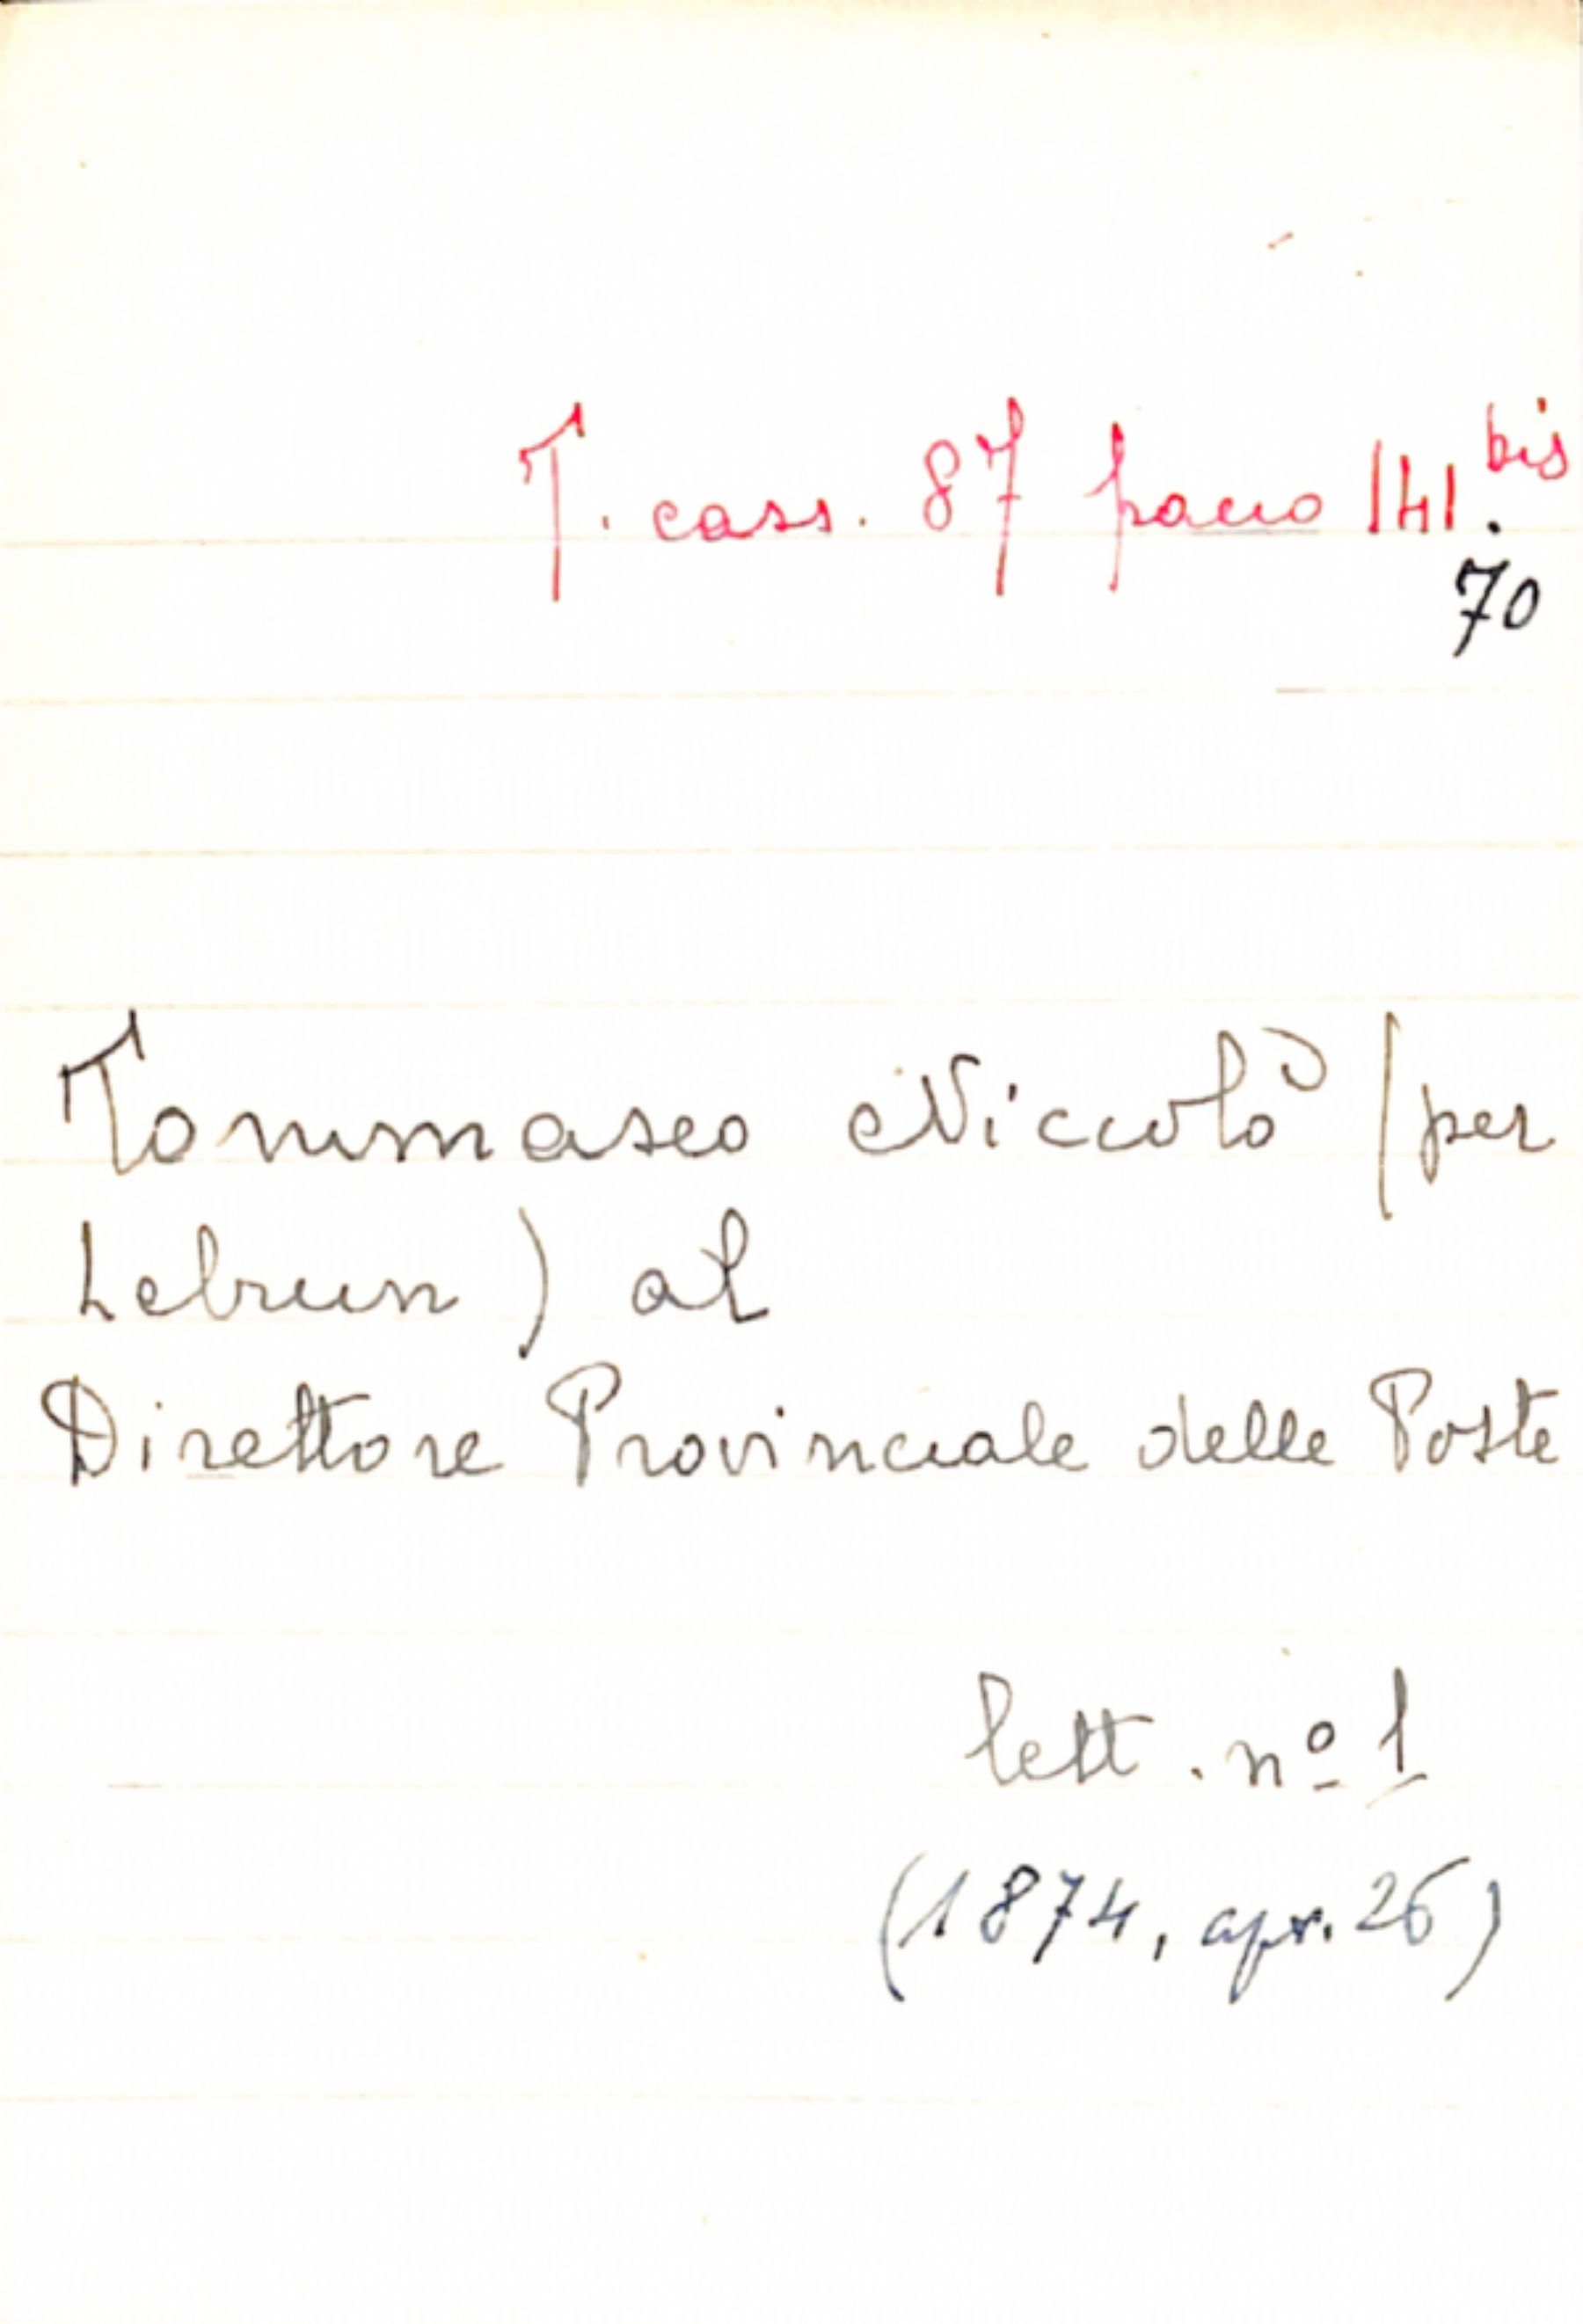 T. cass. 87 pacco 141 bis.
70
Tommaseo Niccolò (per
Lebrun) al
Direttore Provinciale delle Poste
lett. nº 1
(1874, apr. 26)